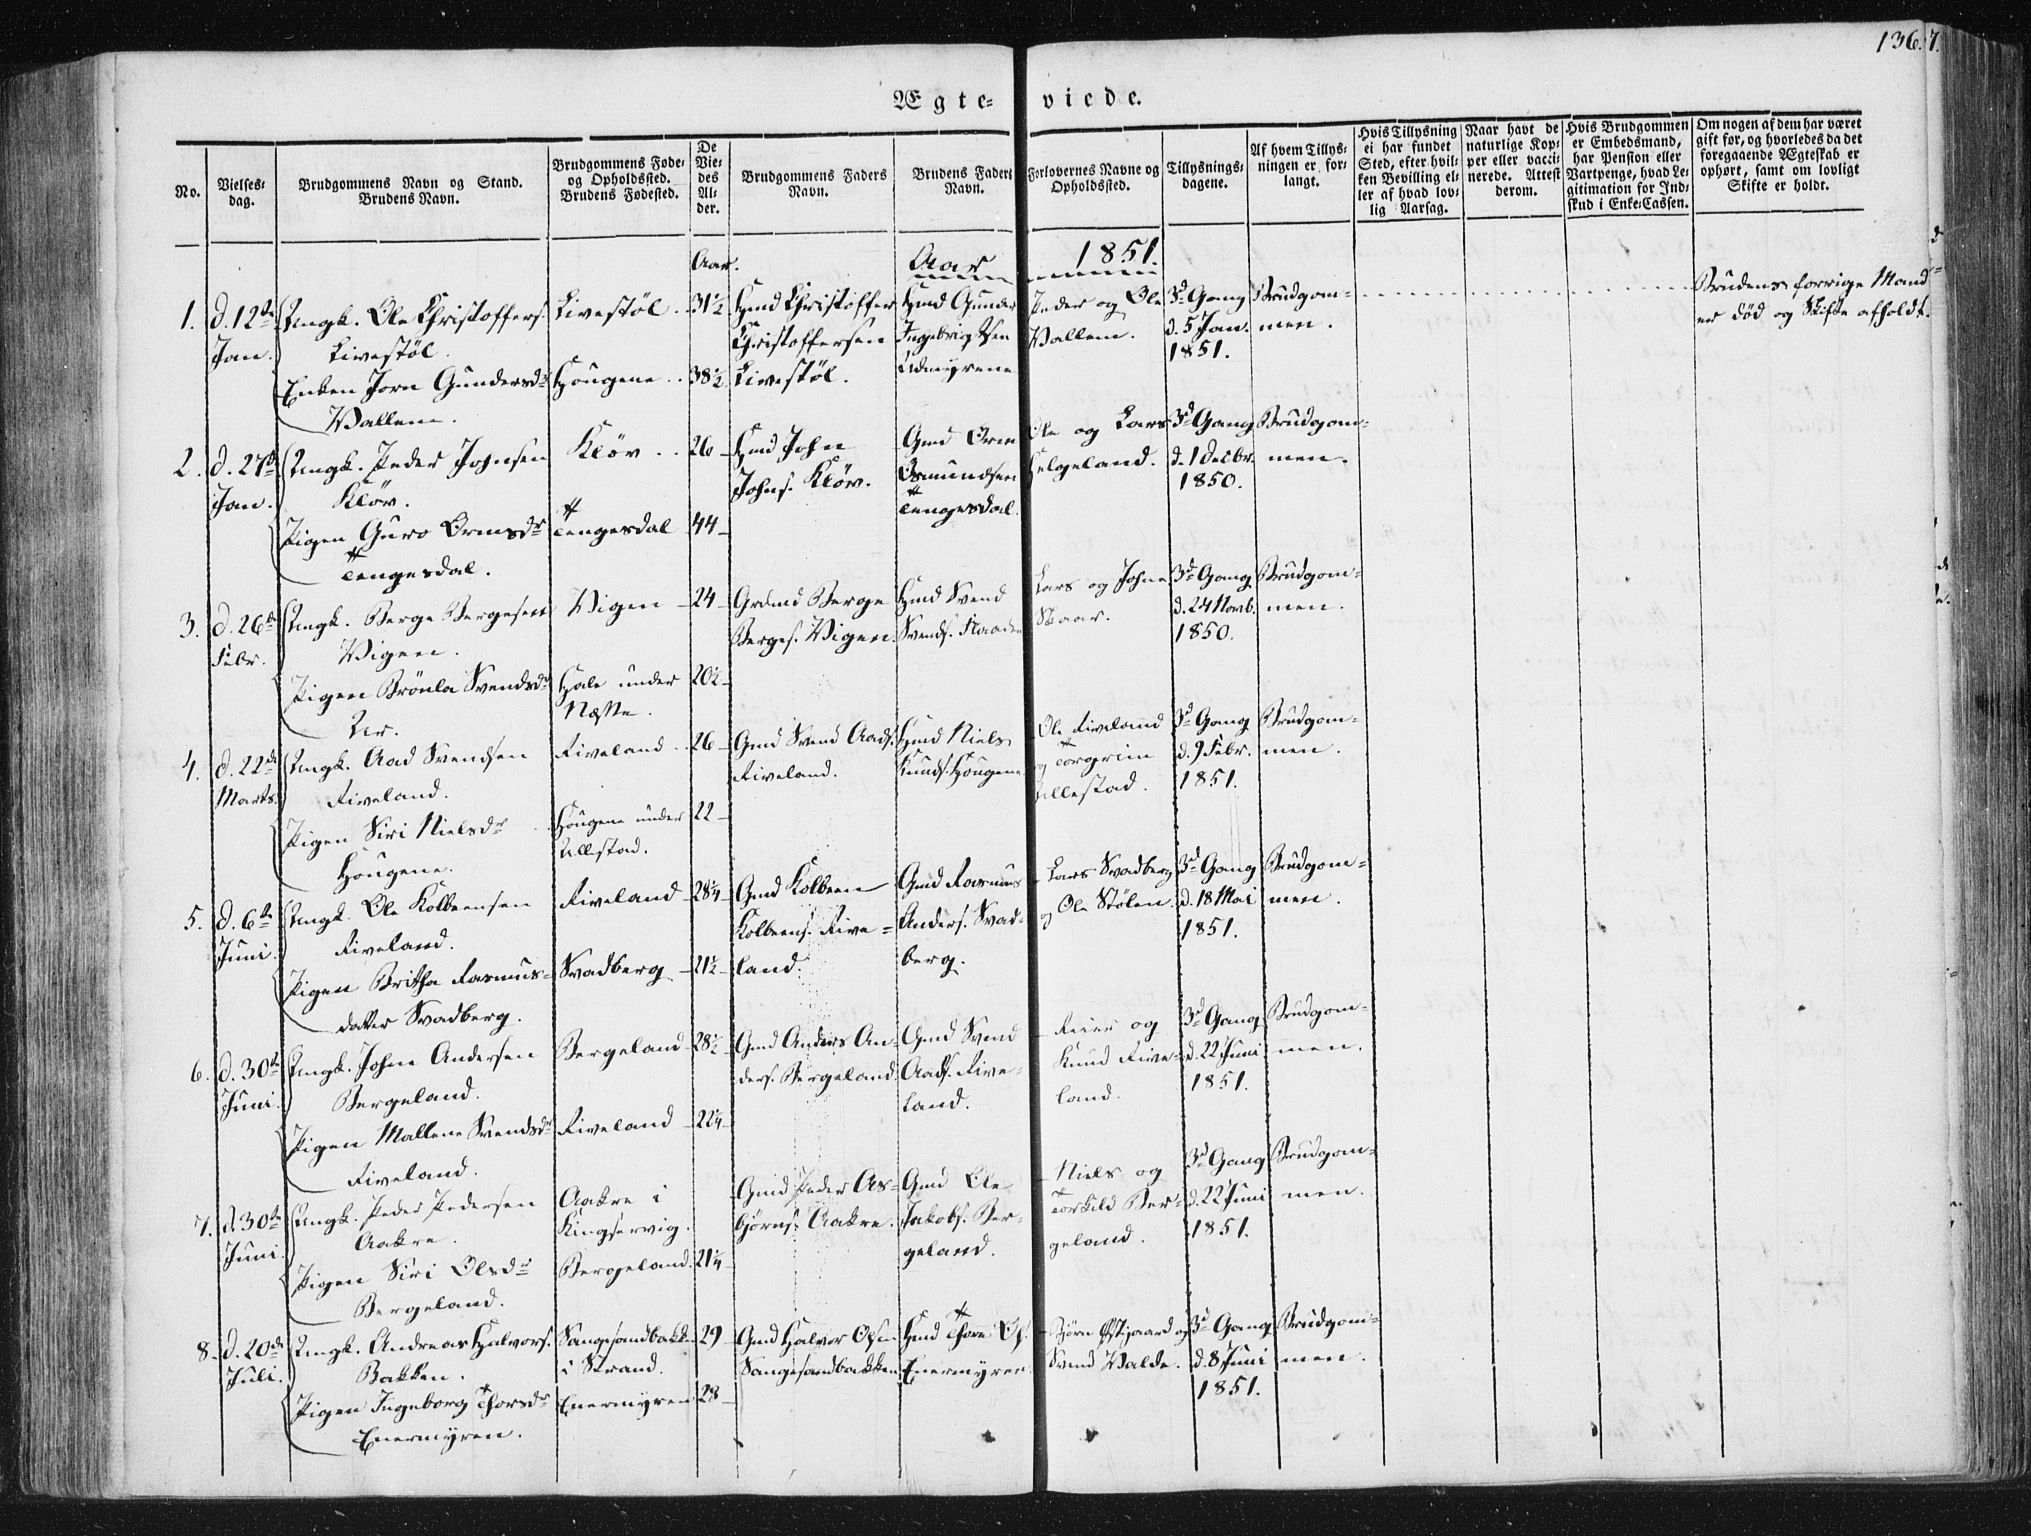 136.
7.
Ægte-
viede.
No.
Vielses-
dag.
Brudgommens Navn og Stand.
Brudens Navn.
Brudgommens Føde-
og Opholdssted.
Brudens Fødested.
De
Vie-
des
Al-
der.
Brudgommens Faders
Navn.
Brudens Faders
Navn.
Forlovernes Navne og
Opholdssted.
Tillysnings-
dagene.
Af hvem Tillys-
ningen er for-
langt.
Hvis Tillysning
ei har fundet
Sted, efter hvil-
ken Bevilling el-
ler af hvad lov-
lig Aarsag.
Naar havt de
naturlige Kop-
per eller vacci-
nerede. Attest
derom.
Hvis Brudgommen
er Embedsmand,
har Pension eller
Vartpenge, hvad Le-
gitimation for Ind-
skud i Enke-Cassen.
Om nogen af dem har været
gift før, og hvorledes da det
foregaaende Ægteskab er
ophørt, samt om lovligt
Skifte er holdt.
Aar.
Aar
1851.
1.
d. 12te
Jan.
Ungk. Ole Christoffers.
Livestøl.
Enken Jorn Gundersdr
Vallem.
Livestøl.
Hougene
31½
38½
Hmd Christoffer
Christoffersen
Livestøl.
Hmd Gunder
Ingebrigtsen
Udmyrene
Peder og Ole
Vallem.
3d Gang
d. 5 Jan.
1851.
Brudgom-
men.
Brudens forrige Mand
er død og Skifte afholdt.
2.
d. 27de
Jan.
Ungk. Peder Johnsen
Kløv.
Pigen Guro Ormsdr
Tengesdal.
Kløv
Tengesdal
26
44
Hmd John
Johns. Kløv.
Gmd Orm
Osmundsen
Tengesdal.
Ole og Lars
Helgeland.
3d Gang
d. 1 Decbr.
1850.
Brudgom-
men.
3.
d. 26de
Febr.
Ungk. Berge Bergesen
Vigen.
Pigen Brönla Svendsdr
Ur.
Vigen
Hale under
Nætte.
24
20½
Grdmd Berge
Berges. Vigen.
Hmd Svend
Svends.
Lars og Johne
Skaar.
3d Gang
d. 24 Novb.
1850.
Brudgom-
men.
4.
d. 22de
Marts.
Ungk. Aad Svendsen
Riveland.
Pigen Siri Nielsdr
Hougene.
Riveland
Hougene under
Ullestad.
26
22
Gmd Svend Aads.
Riveland.
Hmd Niels
Knuds. Hougene
Ole Riveland
og Torgrim
Ullestad.
3d Gang
d. 9 Febr.
1851.
Brudgom-
men.
5.
d. 6te
Juni.
Ungk. Ole Kolbeensen
Riveland.
Pigen Britha Rasmus-
datter Svadberg.
Riveland
Svadberg
28¼
21½
Gmd Kolbeen
Kolbeens. Rive-
land.
Gmd Rasmus
Anders. Svad-
berg.
Lars Svadberg
og Ole Stølen.
3d Gang
d. 18 Mai
1851.
Brudgom-
men.
6.
d. 30te
Juni.
Ungk. Johne Andersen
Bergeland.
Pigen Mallene Svendsdr
Riveland.
Bergeland
Riveland
28½
22¼
Gmd Anders An-
ders. Bergeland
Gmd Svend
Aads. Rive-
land.
Reier og
Knud Rive-
land.
3d Gang
d. 22 Juni
1851.
Brudgom-
men.
7.
d. 30te
Juni.
Ungk. Peder Pedersen
Aakre.
Pigen Siri Olsdr
Bergeland.
Aakre i
Kingservig.
Bergeland.
21¼
Gmd Peder As-
bjørns. Aakre.
Gmd Ole
Jakobs. Ber-
geland.
Niels og
Torkild Ber-
geland.
3d Gang
d. 22 Juni
1851.
Brudgom-
men.
8.
d. 20de
Juli.
Ungk. Andreas Halvors.
Bakken.
Pigen Ingeborg Thorsdr
Enermyren.
Sangesandbakk.
i Strand.
Enermyren
29
28
Gmd Halvor Olsen
Sangesandbakken
Hmd Thore Ols.
Enermyren
Bjørn Østigaard og
Svend Valde.
3d Gang
d. 8 Juni
1851.
Brudgom-
men.